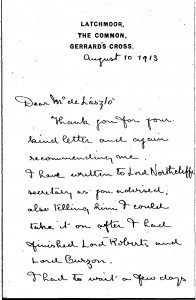 LATCHMOOR,
THE COMMON,
GERRARD'S CROSS.
August 10 1913
Dear Mr de László
Thank you for your
kind letter and again
recommending me.
I have written to Lord Northcliffe's
secretary as you advised,
also telling him I could
take it on after I had
finished Lord Roberts and
Lord Curzon.
I had to wait a few days